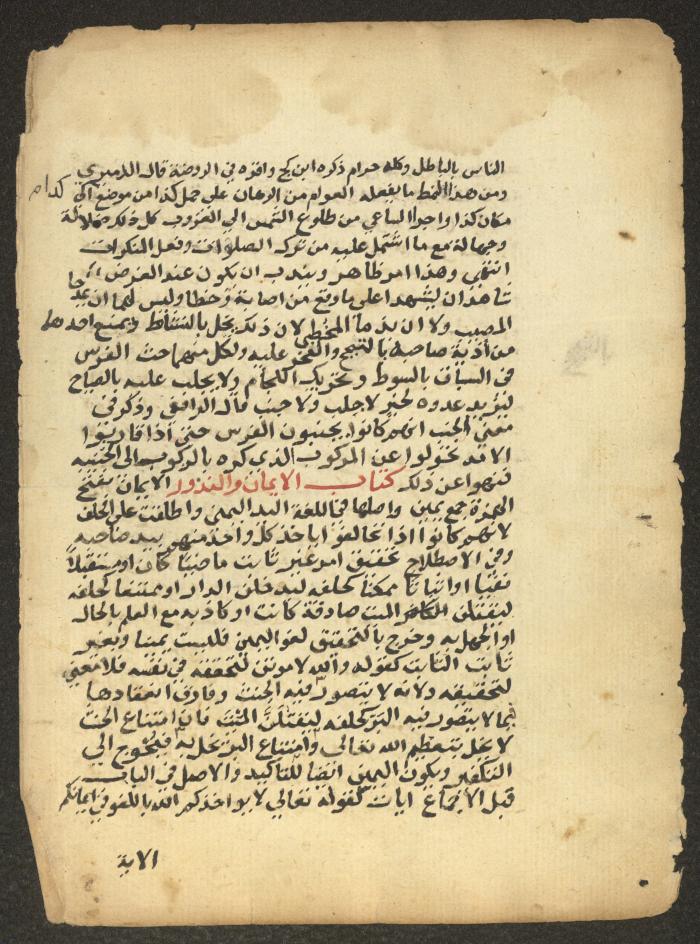 الناس بالباطل وكله حرام ذكره ابن كج واقره في الروضة قال الدميري
ومن هذا النمط ما يفعله العوام من الرهان على حمل كذا من موضع كذا الى
مكان كذا واجرا الساعي من طلوع الشمس الي الغروب كل ذلك ضلالة
وجهالة مع ما اشتمل عليه من ترك الصلوات وفعل المنكرات
انتهى وهذا امر ظاهر ويندب ان يكون عند الغرض
شاهدان ليشهدا على ما وقع من اصابة وخطا وليس لهما ان يمدحا
المصيب ولا ان يذما المخطي لان ذلك يخل بالنشاط ويمنع احدهما
من أذية صاحبه بالتبجح والفخر عليه ولكل منهما حث الفرس
في السباق بالسوط وتحريك اللجام ولا يجلب عليه بالصياح
ليزيد عدوه لخبر لا جلب ولا جنب قال الرافعي وذكر في
معنى الجنب انهم كانوا يجنبون الفرس حتى اذا قاربوا
الامد تحولوا عن المركوب الذي كره بالركوب الى الجنيبة
فنهوا عن ذلك كتاب الايمان والنذور الايمان بفتح
الهمزة جمع يمين واصلها في اللغة اليد اليمنى واطلقت على الحلف
لانهم كانوا اذا تحالفوا ياخذ كل واحد منهم بيد صاحبه
وفي الاصطلاح تحقيق امر غير ثابت ماضيا كان او مستقبلا
نفيا او اثباتا ممكنا كحلفه ليدخلن الدار او ممتنعا كحلفه
ليقتلن الميت صادقة كانت او كاذبه مع العلم بالحال
او الجهل به وخرج بالتحقيق لغو اليمين فليست يمينا وبغير
ثابت الثابت كقوله والله لاموتن لتحققه في نفسه فلا معنى
لتحقيقه ولانه لا يتصور فيه الحنث وفارق انعقادها
بما لا يتصور فيه البر كحلفه ليقتلن الميت فان امتناع الحنث
لا يخل بتعظيم الله تعالى وامتناع البر يخل به فيحوج الى
التكفير ويكون اليمين ايضا للتاكيد والاصل في الباب
قبل الاجماع ايات كقوله تعالي لا يواخذكم الله باللغو في ايمانكم
الاية